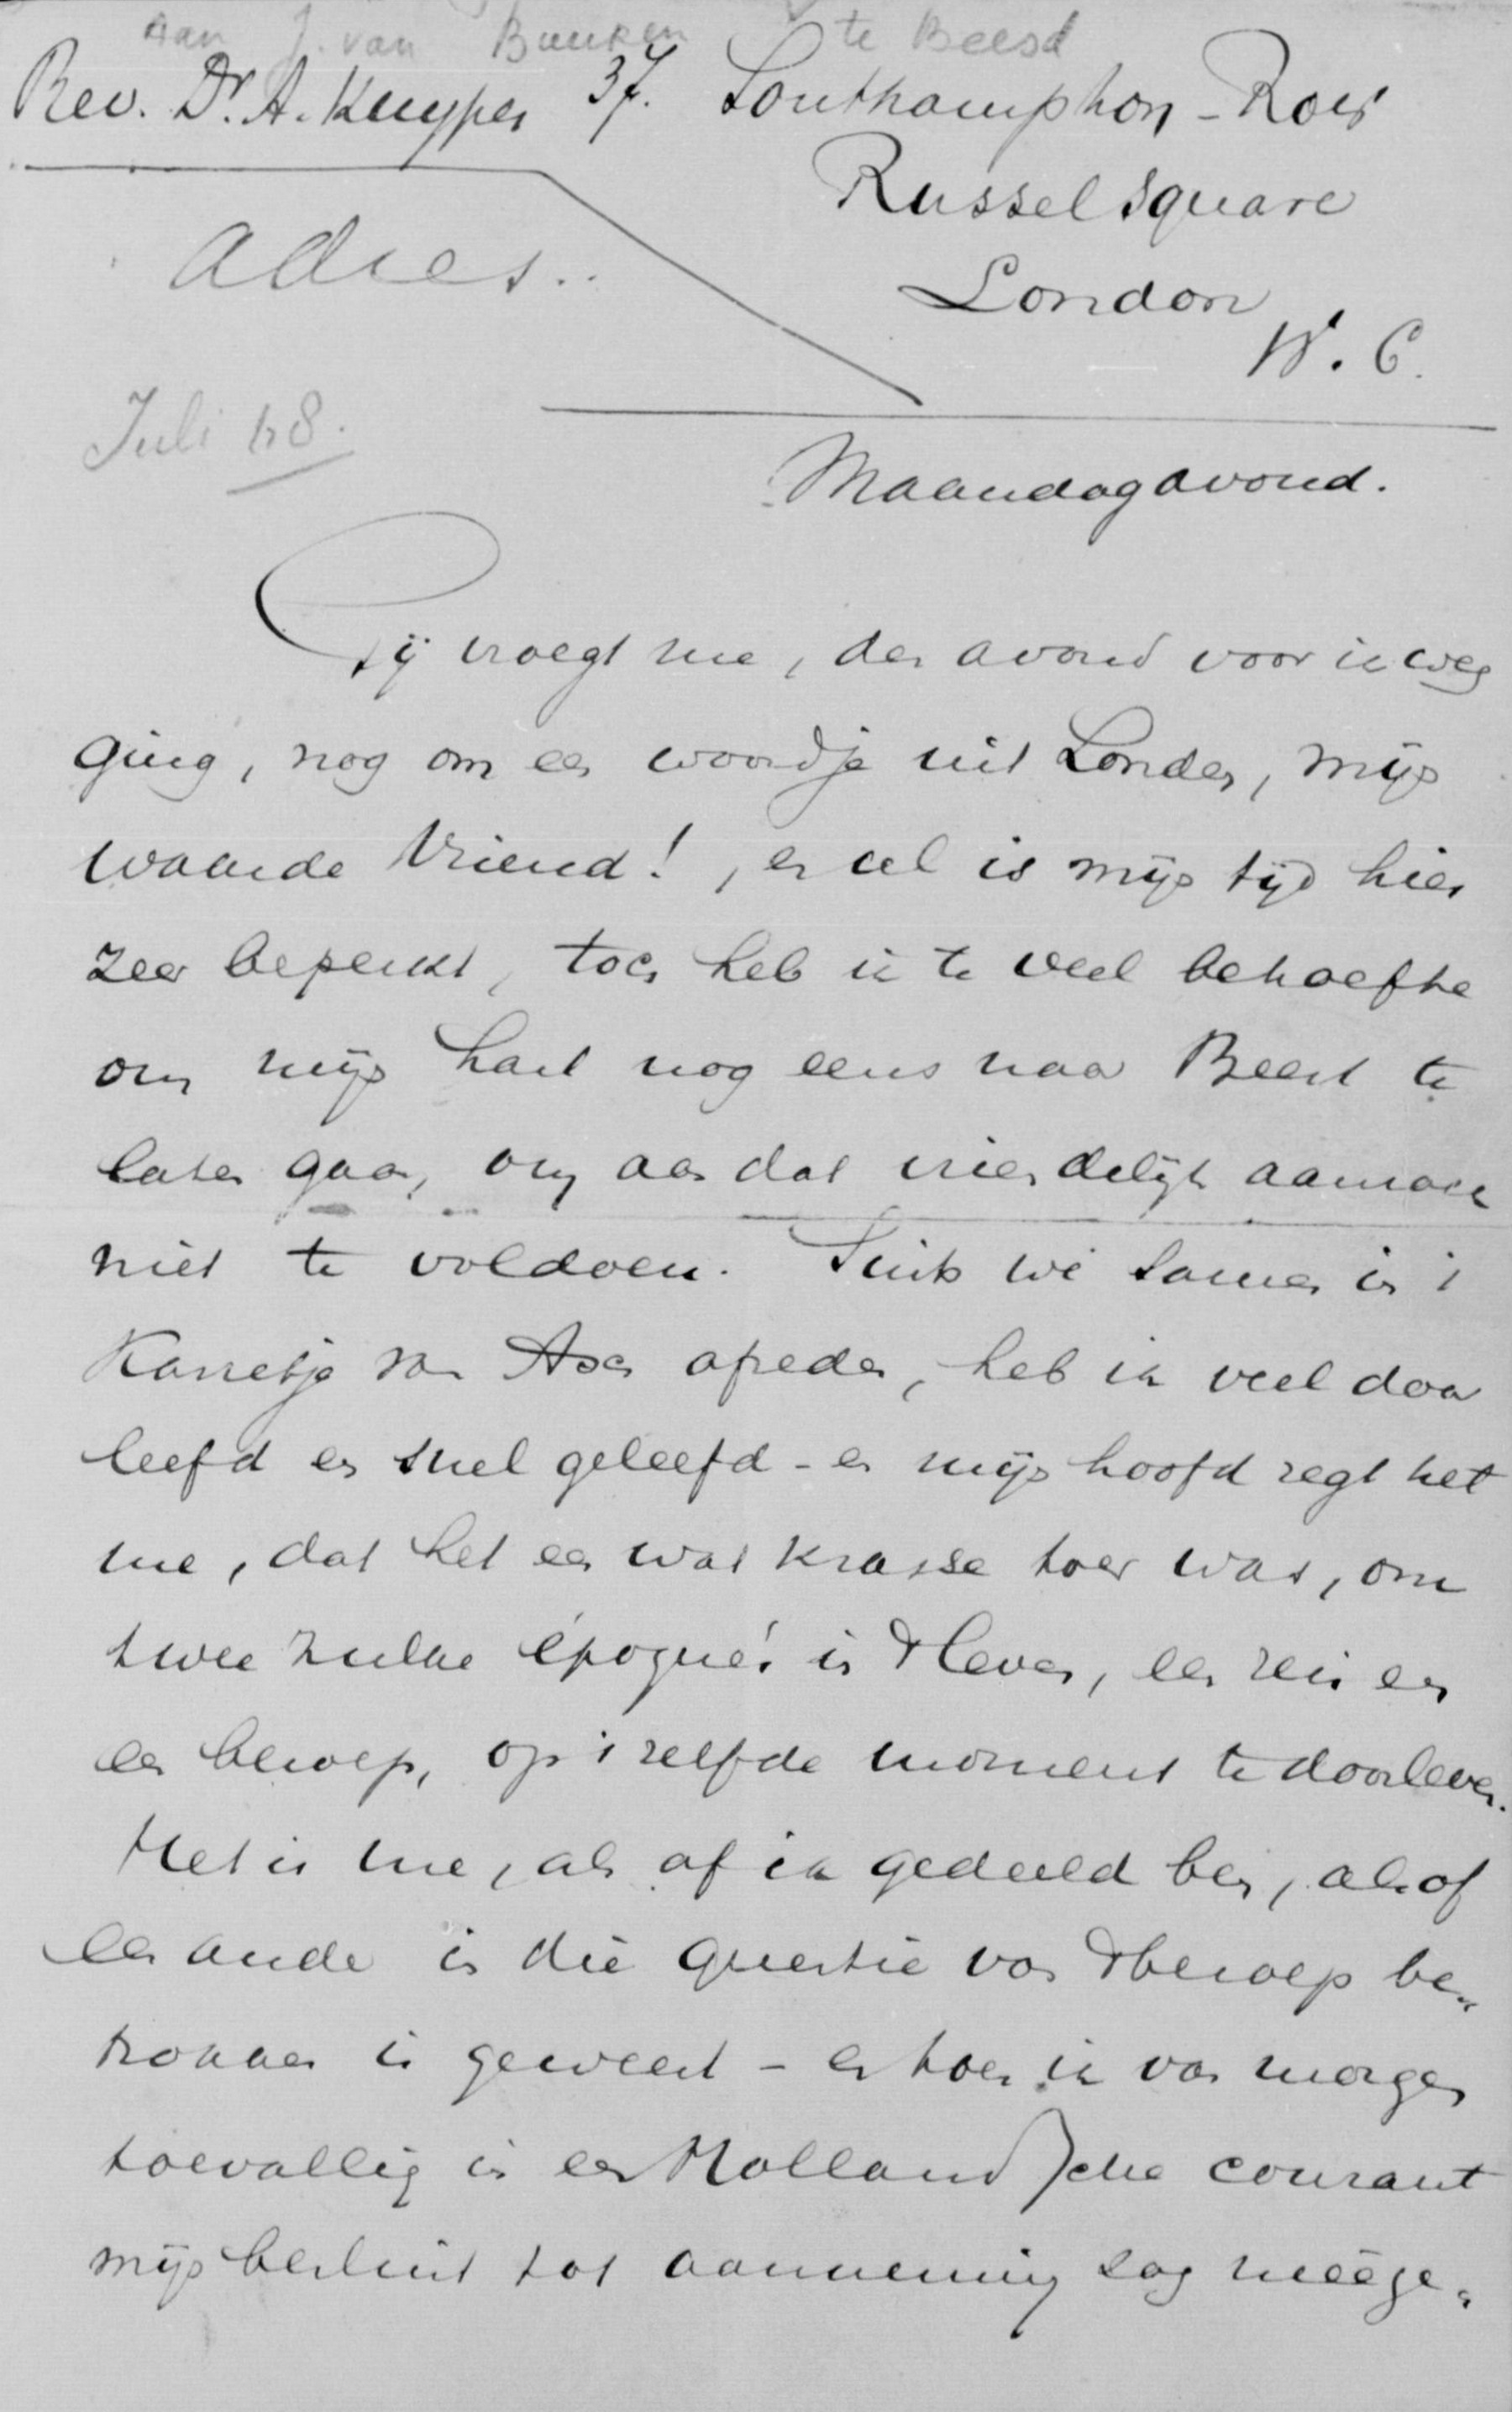 Aan J. van Beuken te Beesd
Rev. Dr. A. Kuyper 37. Southampton-Row
Russel Square
Adres..
London
W. C.
Juli 68.
Maandagavond.
Gij vroegt me, den avond voor ik weg
ging, nog om een woordje uit Londen, mijn
waarde Vriend!, en al is mijn tijd hier
zeer beperkt, toch heb ik te veel behoefte
om mijn hart nog eens naar Beest te
laten gaan, om aan dat vriendelijk aanzoek
niet te voldoen. Sints we samen in 't
Karretje van Asch afreden, heb ik veel door
leefd en snel geleefd - en mijn hoofd zegt het
me, dat het een wat krasse toer was, om
twee zulke époque's in 't leven, een reis en
een beroep, op 't zelfde moment te doorleven.
Het is me, als of ik gedeeld ben, als of
een ander in die questie van 't beroep be„
trokken is geweest - en toen ik van morgen
toevallig in een Hollandsche courant
mijn besluit tot aanneming zag meêge„